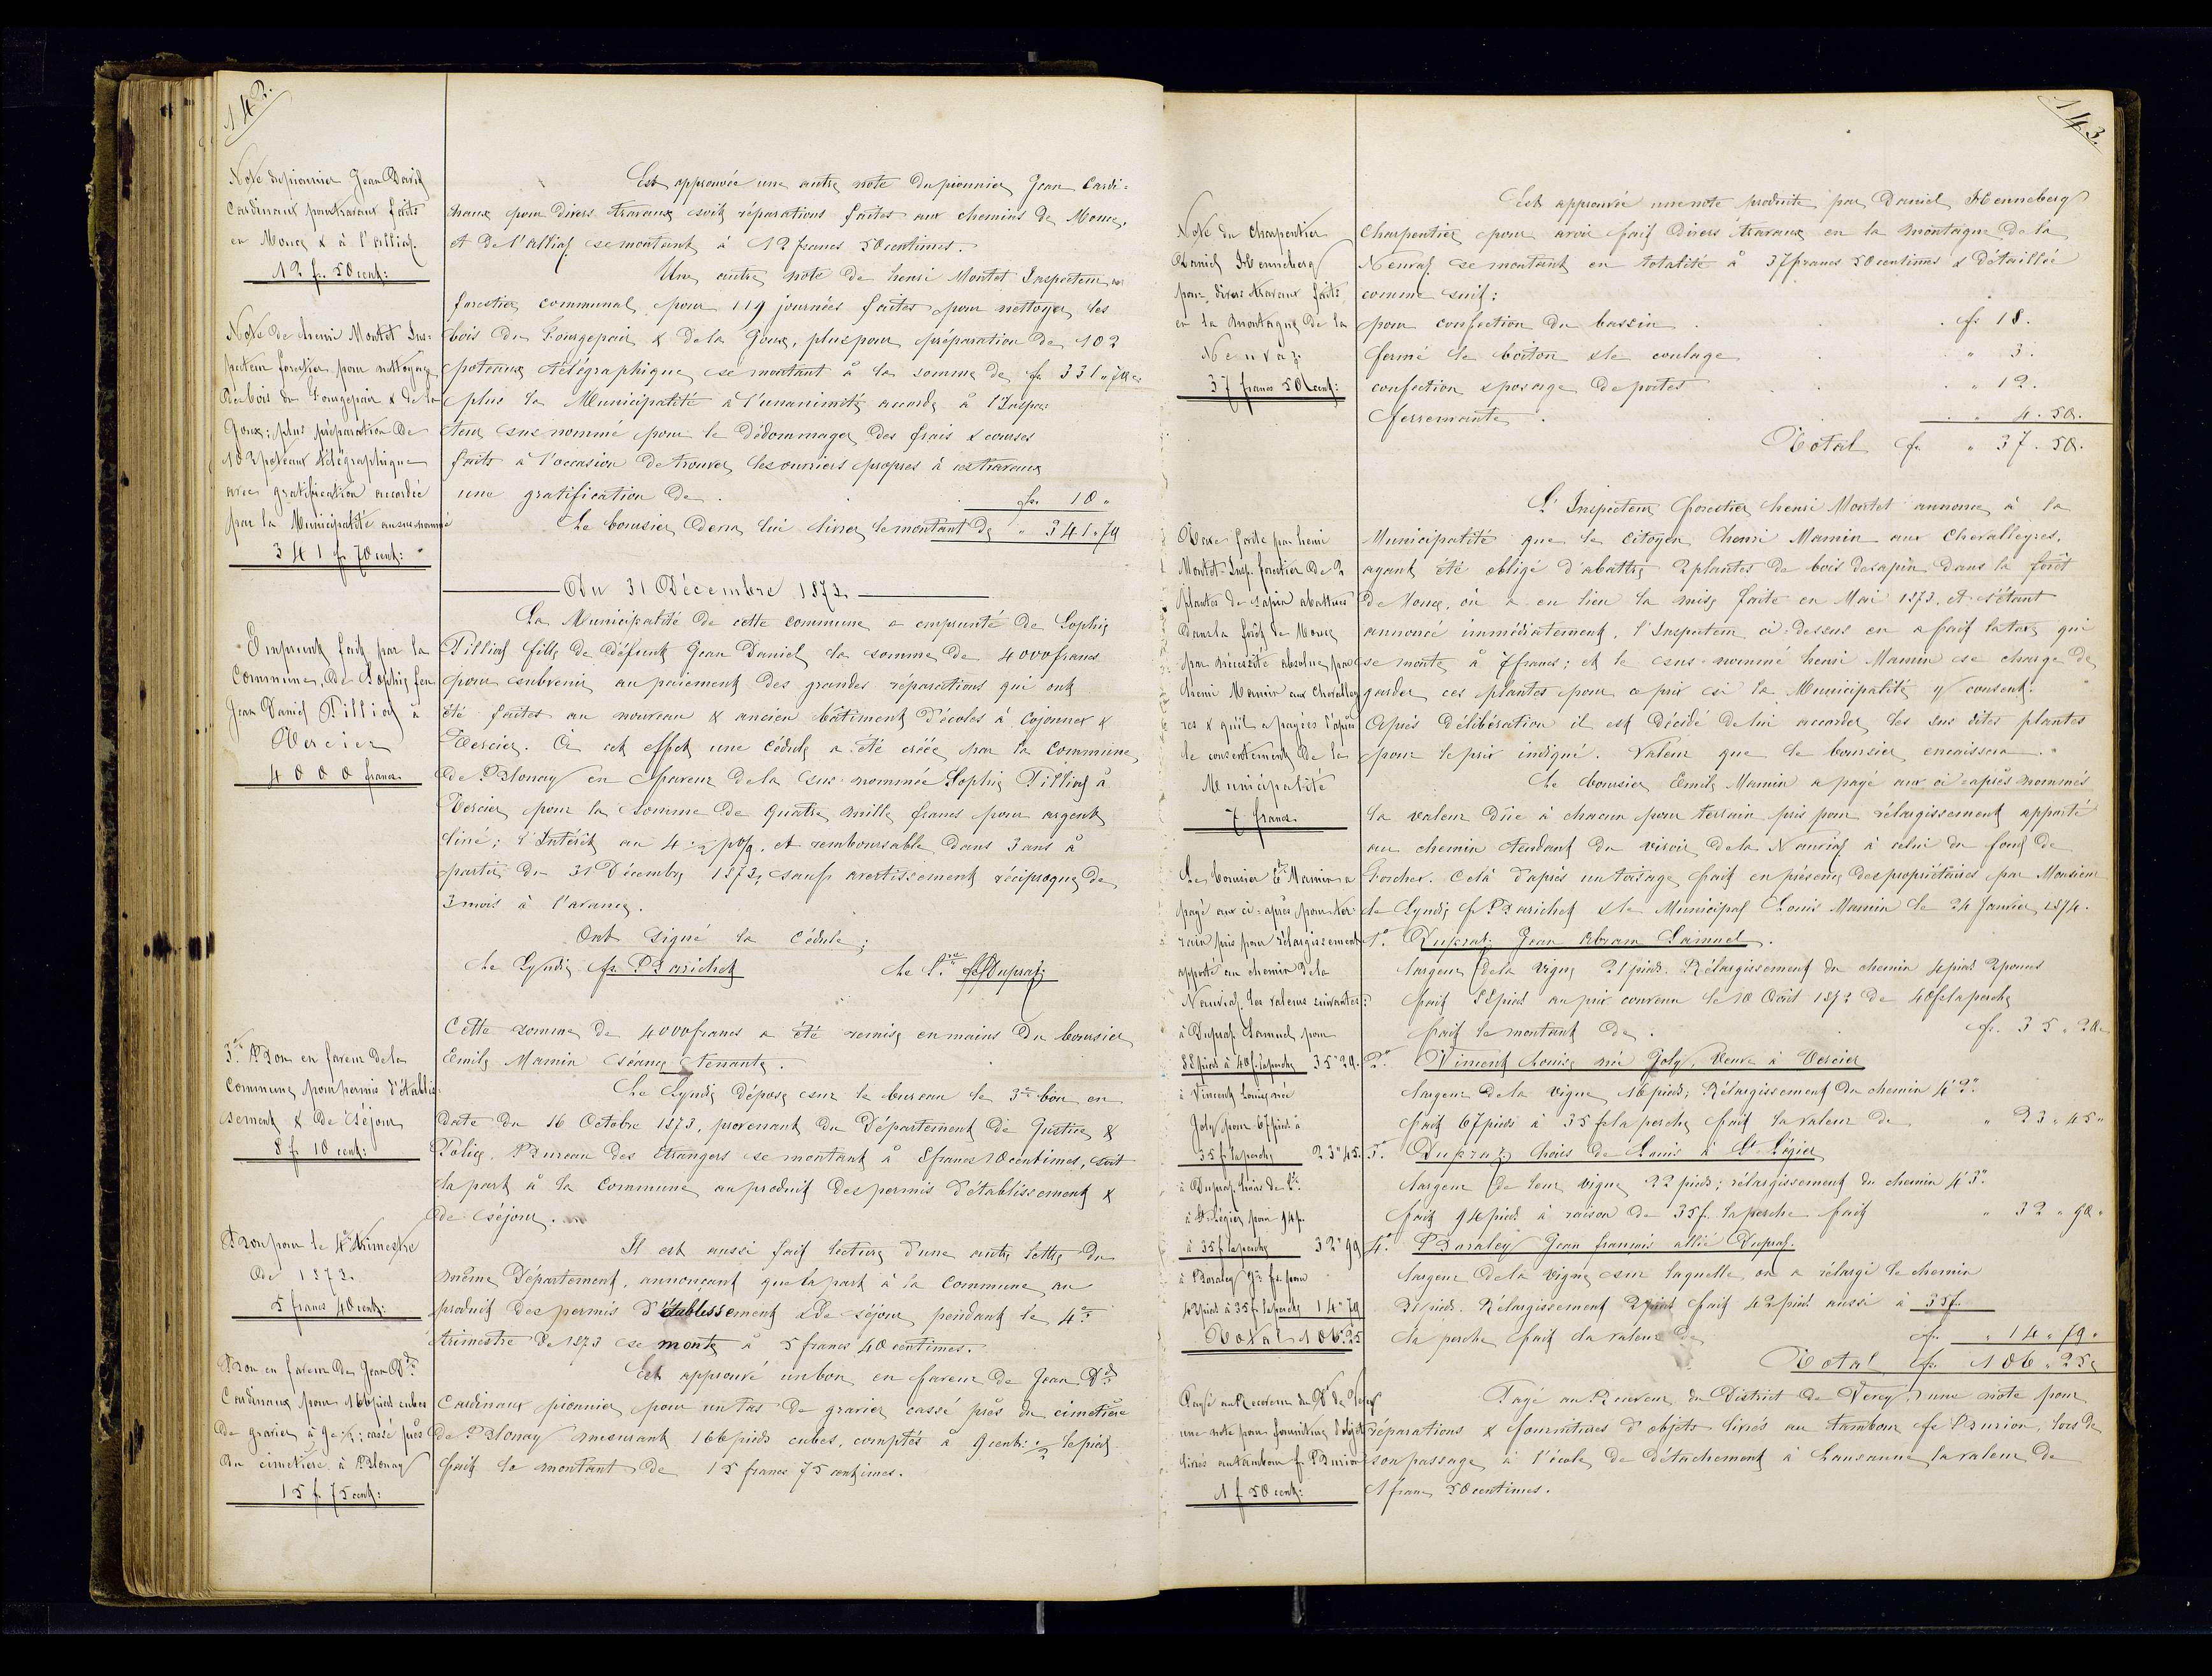 142.
Note du pionnier Jean David
Cardinaux pour travaux faits
en Mouce & à l'Alliaz.
12 fr. 50 cent:
Note de henri Montet Ins-
pecteur forestier pour nettoyage
des bois du Fourgepair & de la
Joux; plus préparation de
102 poteaux télégraphique
avec gratification accordée
par la Municipalité au susnommé
341 fr. 70 cent:
Emprunt fait par la
Commune, de Sophie feu
Jean Daniel Pilliod à
Tercier
4000 francs.
3me Bon en faveur de la
Commune pour permis d'établis-
sement & de séjour
8 f. 10 cent:
Bon pour le 4me trimestre
de 1873.
5 francs 40 cent:
Bon en faveur de Jean Dd
Cardinaux pour 166 pieds cubes
de gravier à 9c ½; cassé près
du cimetière à Blonay
15 f. 75 cent:
Est approuvée une autre note du pionnier Jean Cardi-
naux pour divers travaux soit réparations faites aux chemins de Mouce,
et de l'Alliaz se montant à 12 francs 50 centimes.
Une autre note de henri Montet Inspecteur
forestier communal pour 119 journées faites pour nettoyer les
bois du Fourgepair & de la Joux, plus pour préparation de 102
poteaux télégraphique se montant à la somme de fr. 331 " 70 c
plus la Municipalité à l'unanimité accorde à l'Inspec-
teur sus nommé pour le dédommager des frais & courses
faits à l'occasion de trouver les ouvriers propres à ces travaux
une gratification de . fr. 10 "
Le boursier devra lui livrer le montant de " 341 " 70
Du 31 Décembre 1873.
La Municipalité de cette commune a emprunté de Sophie
Pilliod fille de défunt Jean Daniel la somme de 4000 francs
pour subvenir au paiement des grandes réparations qui ont
été faites au nouveau & ancien bâtiment d'écoles à Cojonnex &
Tercier. A cet effet une cédule a été créée par la Commune
de Blonay en faveur de la sus-nommée Sophie Pilliod à
Tercier pour la somme de quatre mille francs pour argent
livré; l'Intérêt au 4 ½ p%. et remboursable dans 3 ans à
partir du 31 Décembre 1873, sauf avertissement réciproque de
3 mois à l'avance.
Ont signé la Cédule;
Le Syndic fr. Bonjour Le Sre Dupraz
Cette somme de 4000 francs a été remise en mains du boursier
Emile Mamin séance tenante.
Le Syndic dépose sur le bureau le 3me bon en
date du 16 Octobre 1873, provenant du Département de Justice &
Police, Bureau des Etrangers se montant à 8 francs 10 centimes, soit
la part à la Commune au produit des permis d'établissement &
de séjour.
Il est aussi fait lecture d'une autre lettre du
même Département, annonçant que la part à la Commune au
produit des permis d'établissement & de séjour pendant le 4me
trimestre de 1873 se monte à 5 francs 40 centimes.
Est approuvé un bon en faveur de Jean Dd
Cardinaux pionnier pour un tas de gravier cassé près du cimetière
de Blonay mesurant 166 pieds cubes, comptés à 9 cent: ½ le pied
fait le montant de 15 francs 75 centimes.
143.
Note du Charpentier
Daniel Henneberg
pour divers travaux faits
en la montagne de la
Neuvaz.
37 francs 50 cent:
Taxe faite par henri
Montet Insp. forestier de 2
plantes de sapin abattues
dans la forêt de Mouce
par nécessité absolue par
henri Mamin aux Chevalley-
res & qu'il a payées d'après
le consentement de la
Municipalité
7 francs.
Le boursier Ele Mamin a
payé aux ci-après pour ter-
rain pris pour rélargissement
apporté au chemin de la
Neuviaz les valeurs suivantes:
à Dupraz Samuel pour
88 pieds à 40 f. la perche 35 " 20.
à Vincent Louise née
Joly pour 67 pieds à
35 f. la perche 23 " 45.
à Dupraz hoirs de Ls
à St Légier pour 94 p.
à 35 f. la perche 32 " 90
à Boraley Jn fs pour
42 pieds à 35 f. la perche 14 " 70
Total 106 " 25
Payé au Receveur du Dt de Vevey
une note pour fournitures d'objets
livrés au tambour f. Burion
1 f 50 cent:
Est approuvée une note produite par Daniel Henneberg
Charpentier pour avoir fait divers travaux en la montagne de la
Neuvaz se montant en totalité à 37 francs 50 centimes & détaillée
comme suit:
pour confection du bassin . fr 18.
fermé le boiton & le coulage " 3.
confection & posage de portes " 12.
ferremente . " 4. 50.
Total fr. " 37. 50.
L'Inspecteur forestier henri Montet annonce à la
Municipalité que le citoyen henri Mamin aux Chevalleyres,
ayant été obligé d'abattre 2 plantes de bois de sapin dans la forêt
de Mouce, où a eu lieu la mise faite en Mai 1873. et s'étant
annoncé immédiatement, l'Inspecteur ci-dessus en a fait la taxe qui
se monte à 7 francs; et le sus-nommé henri Mamin se charge de
garder ces plantes pour ce prix si la Municipalité y consent.
Après délibération il est décidé de lui accorder les sus dites plantes
pour le prix indiqué. Valeur que le boursier encaissera.
Le boursier Emile Mamin a payé aux ci-après nommés
la valeur dûe à chacun pour terrain pris pour rélargissement apporté
au chemin tendant du viroir de la Neuviaz à celui du fond de
Porchex. Celà d'après un toisage fait en présence des propriétaires par Monsieur
le Syndic f. Bonjour & le Municipal Louis Mamin le 24 Janvier 1874.
1o Dupraz Jean Abram Samuel.
largeur de la vigne 21 pieds. Rélargissement du chemin 4 pieds 2 pouces
fait 88 pieds au prix convenu le 10 Août 1873 de 40 f. la perche
fait le montant de . fr. 35 " 20
2o Vincent Louise née Joly, veuve à Tercier
largeur de la vigne 16 pieds; Rélargissement du chemin 4' 2"
fait 67 pieds à 35 f. la perche fait la valeur de " 23 " 45 "
3o Dupraz, hoirs de Louis à St Légier
largeur de leur vigne 22 pieds; rélargissement du chemin 4' 3"
fait 94 pieds à raison de 35 f. la perche fait " 32 " 90 "
4o Boraley Jean françois allié Dupraz.
largeur de la vigne sur laquelle on a rélargi le chemin
21 pieds. Rélargissement 2 pieds fait 42 pieds aussi à 35 f.
la perche fait la valeur de fr. " 14 " 70 "
Total fr. 106 " 25
Payé au Receveur du District de Vevey, une note pour
réparations & fournitures d'objets livrés au tambour fs Burion, lors de
son passage à l'école de détachement à Lausanne la valeur de
1 franc 50 centimes.